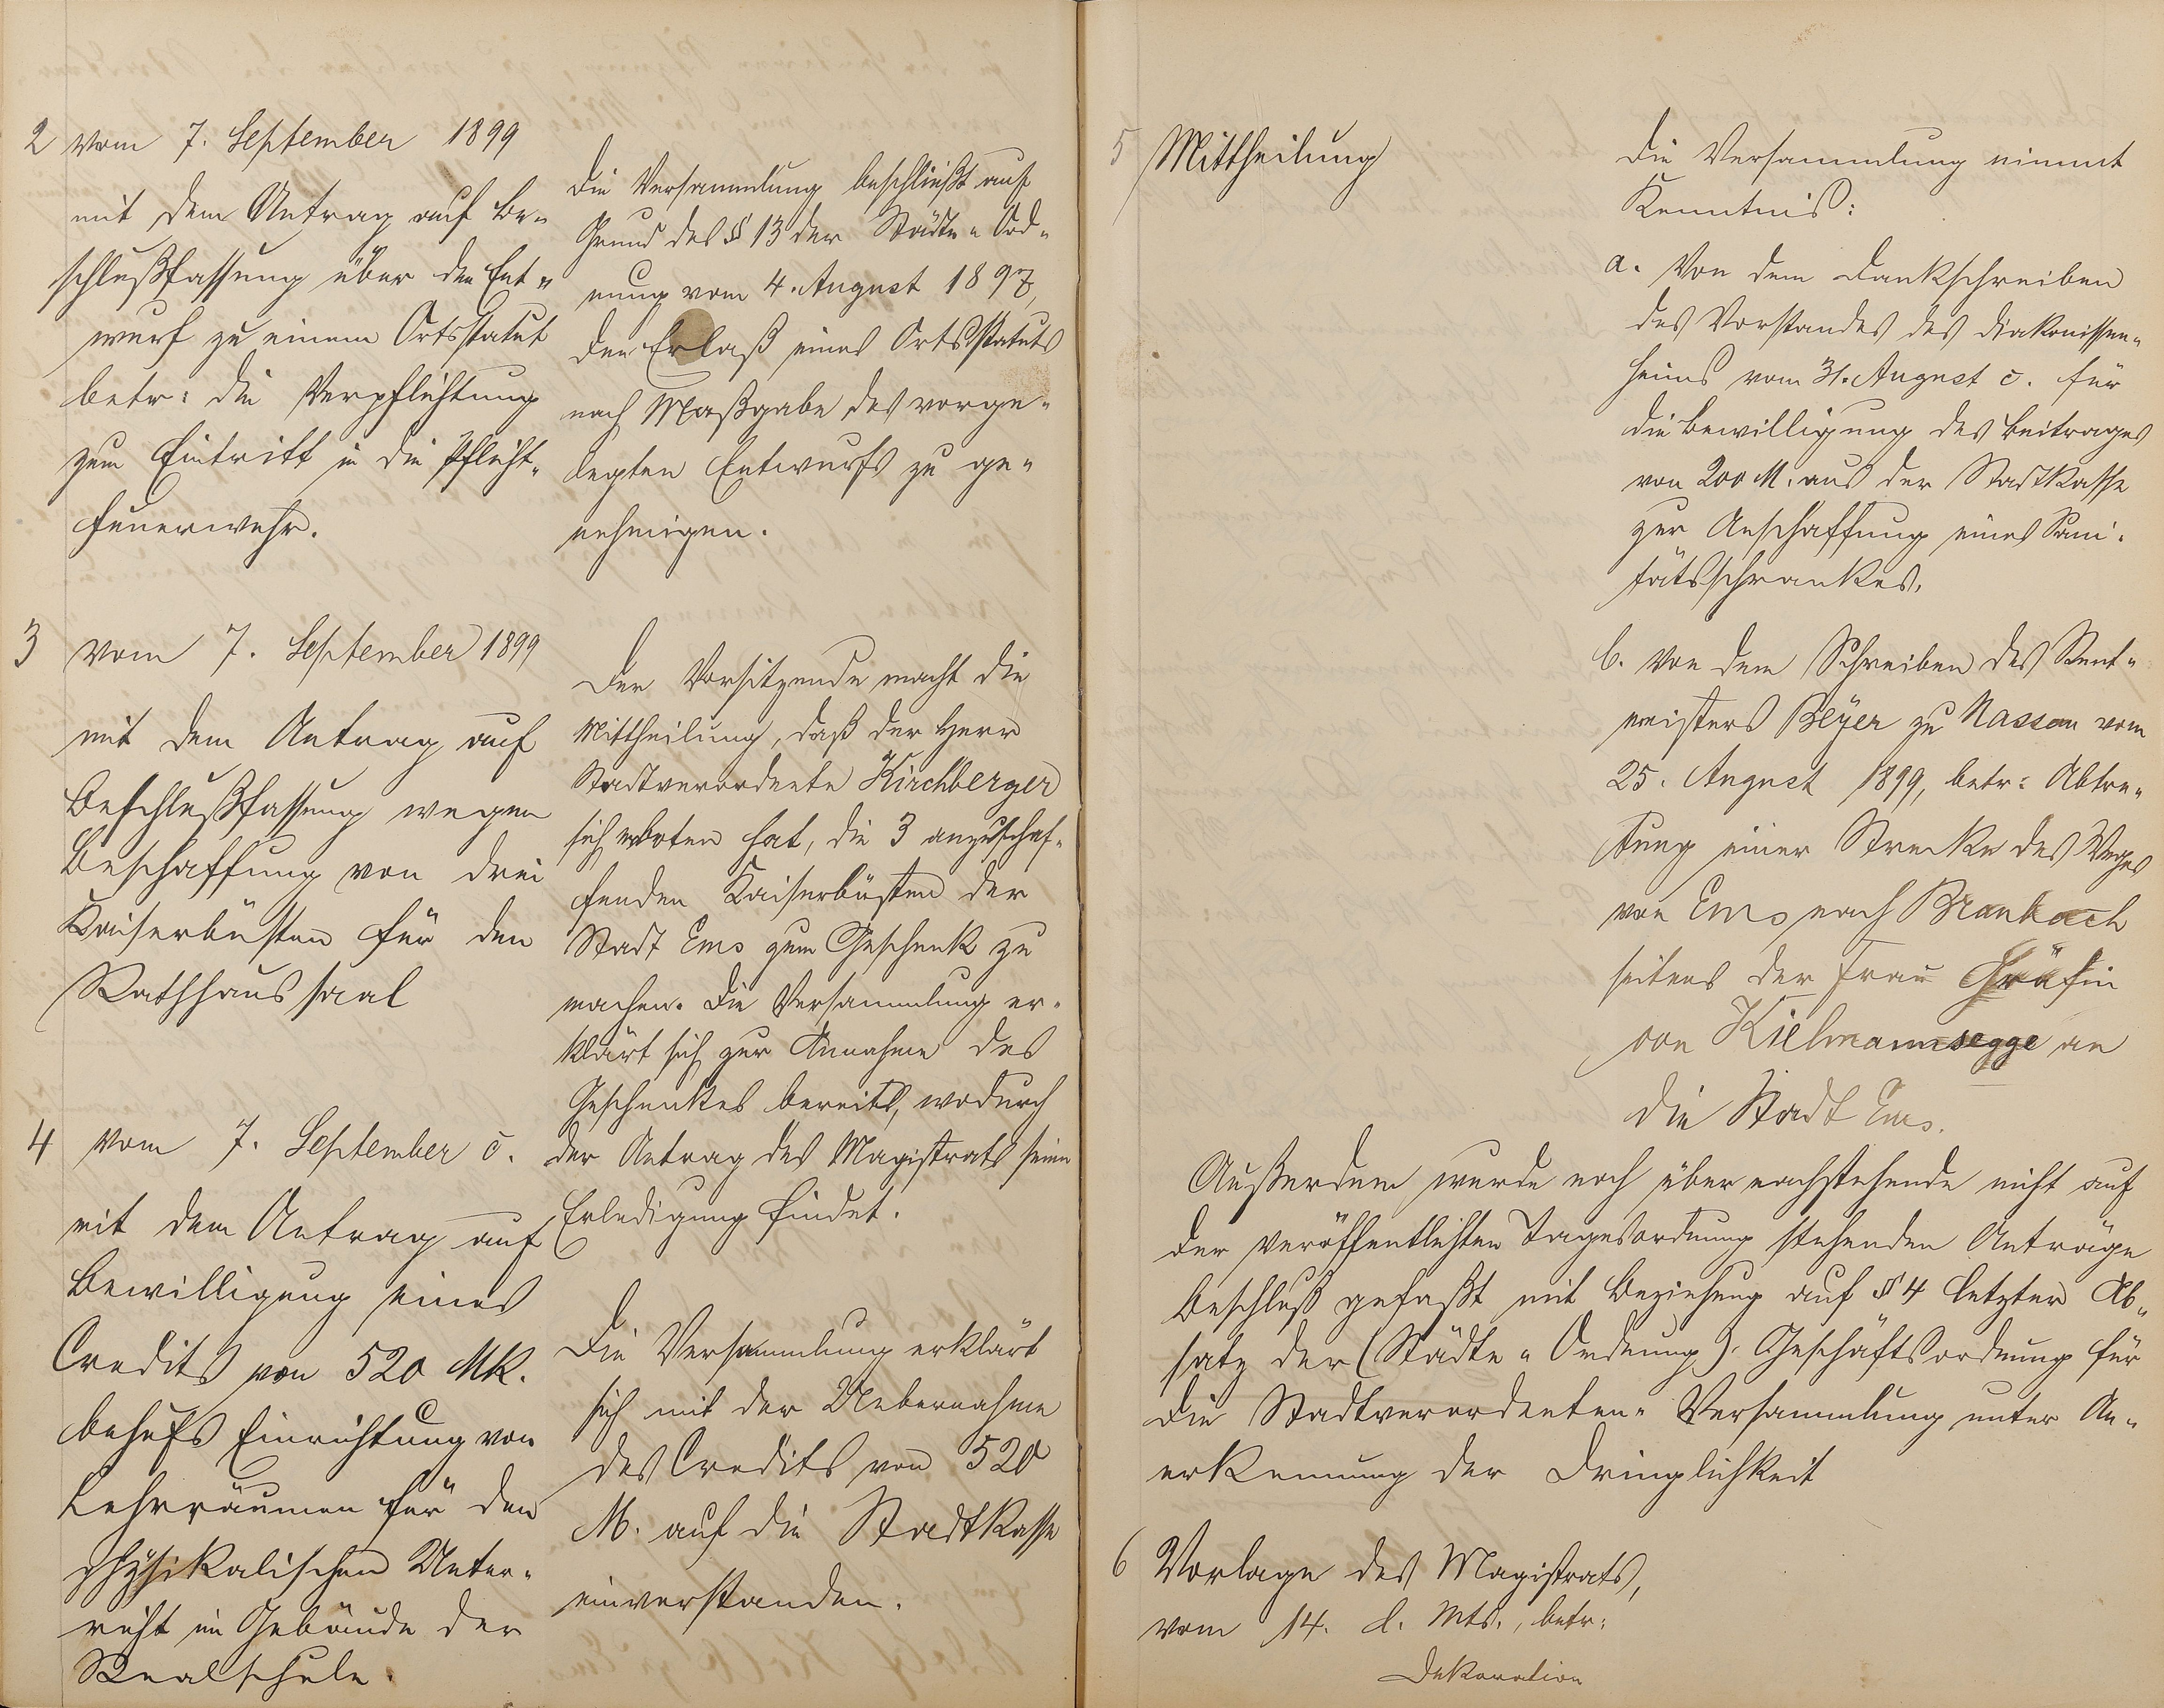 2 vom 7. September 1899
mit dem Antrag auf Be-
schlußfassung über den Ent-
wurf zu einem Ortsstatut
betr: die Verpflichtung
zum Eintritt in die Pflicht-
feuerwehr.
Die Versammlung beschließt auf
Grund des § 13 der Städte-Ord-
nung vom 4. August 1897,
den Erlaß eines Ortsstatuts
nach Maßgabe des vorge-
legten Entwurfs zu ge-
nehmigen.
3 vom 7. September 1899
mit dem Antrag auf
Beschlußfassung wegen
Beschaffung von drei
Kaiserbüsten für den
Rathhaussaal
Der Vorsitzende macht die
Mittheilung, daß der Herr
Stadtverordnete Kirchberger
sich erboten hat, die 3 anzuschaf-
fenden Kaiserbüsten der
Stadt Ems zum Geschenk zu
machen. Die Versammlung er-
klärt sich zur Annahme des
Geschenkes bereit, wodurch
der Antrag des Magistrats seine
Erledigung findet.
4 vom 7. September c.
mit dem Antrag auf
Bewilligung eines
Credits von 520 Mk.
behufs Einrichtung von
Lehrräumen für den
physikalischen Unter-
richt im Gebäude der
Realschule.
Die Versammlung erklärt
sich mit der Uebernahme
des Credits von 520
M. auf die Stadtkasse
einverstanden.
5 Mittheilung
Die Versammlung nimmt
Kenntnis:
a. Von dem Dankschreiben
des Vorstandes des Diakonissen-
heims vom 31. August c. für
die Bewilligung des Beitrages
von 200 M. aus der Stadtkasse
zur Anschaffung eines Sani-
tätsschrankes.
b. Von dem Schreiben des Rent-
meisters Beyer zu Nassau vom
25. August 1899, betr: Abtre-
tung einer Strecke des Weges
von Ems nach Braubach
seitens der Frau Gräfin
von Kielmannsegge an
die Stadt Ems.
Außerdem wurde noch über nachstehende nicht auf
der veröffentlichten Tagesordnung stehenden Anträge
Beschluß gefaßt mit Beziehung auf § 4 letzter Ab-
satz der (Städte-Ordnung) Geschäftsordnung für
die Stadtverordneten-Versammlung unter An-
erkennung der Dringlichkeit
6 Vorlage des Magistrats,
vom 14. d. Mts., betr:
Dekoration